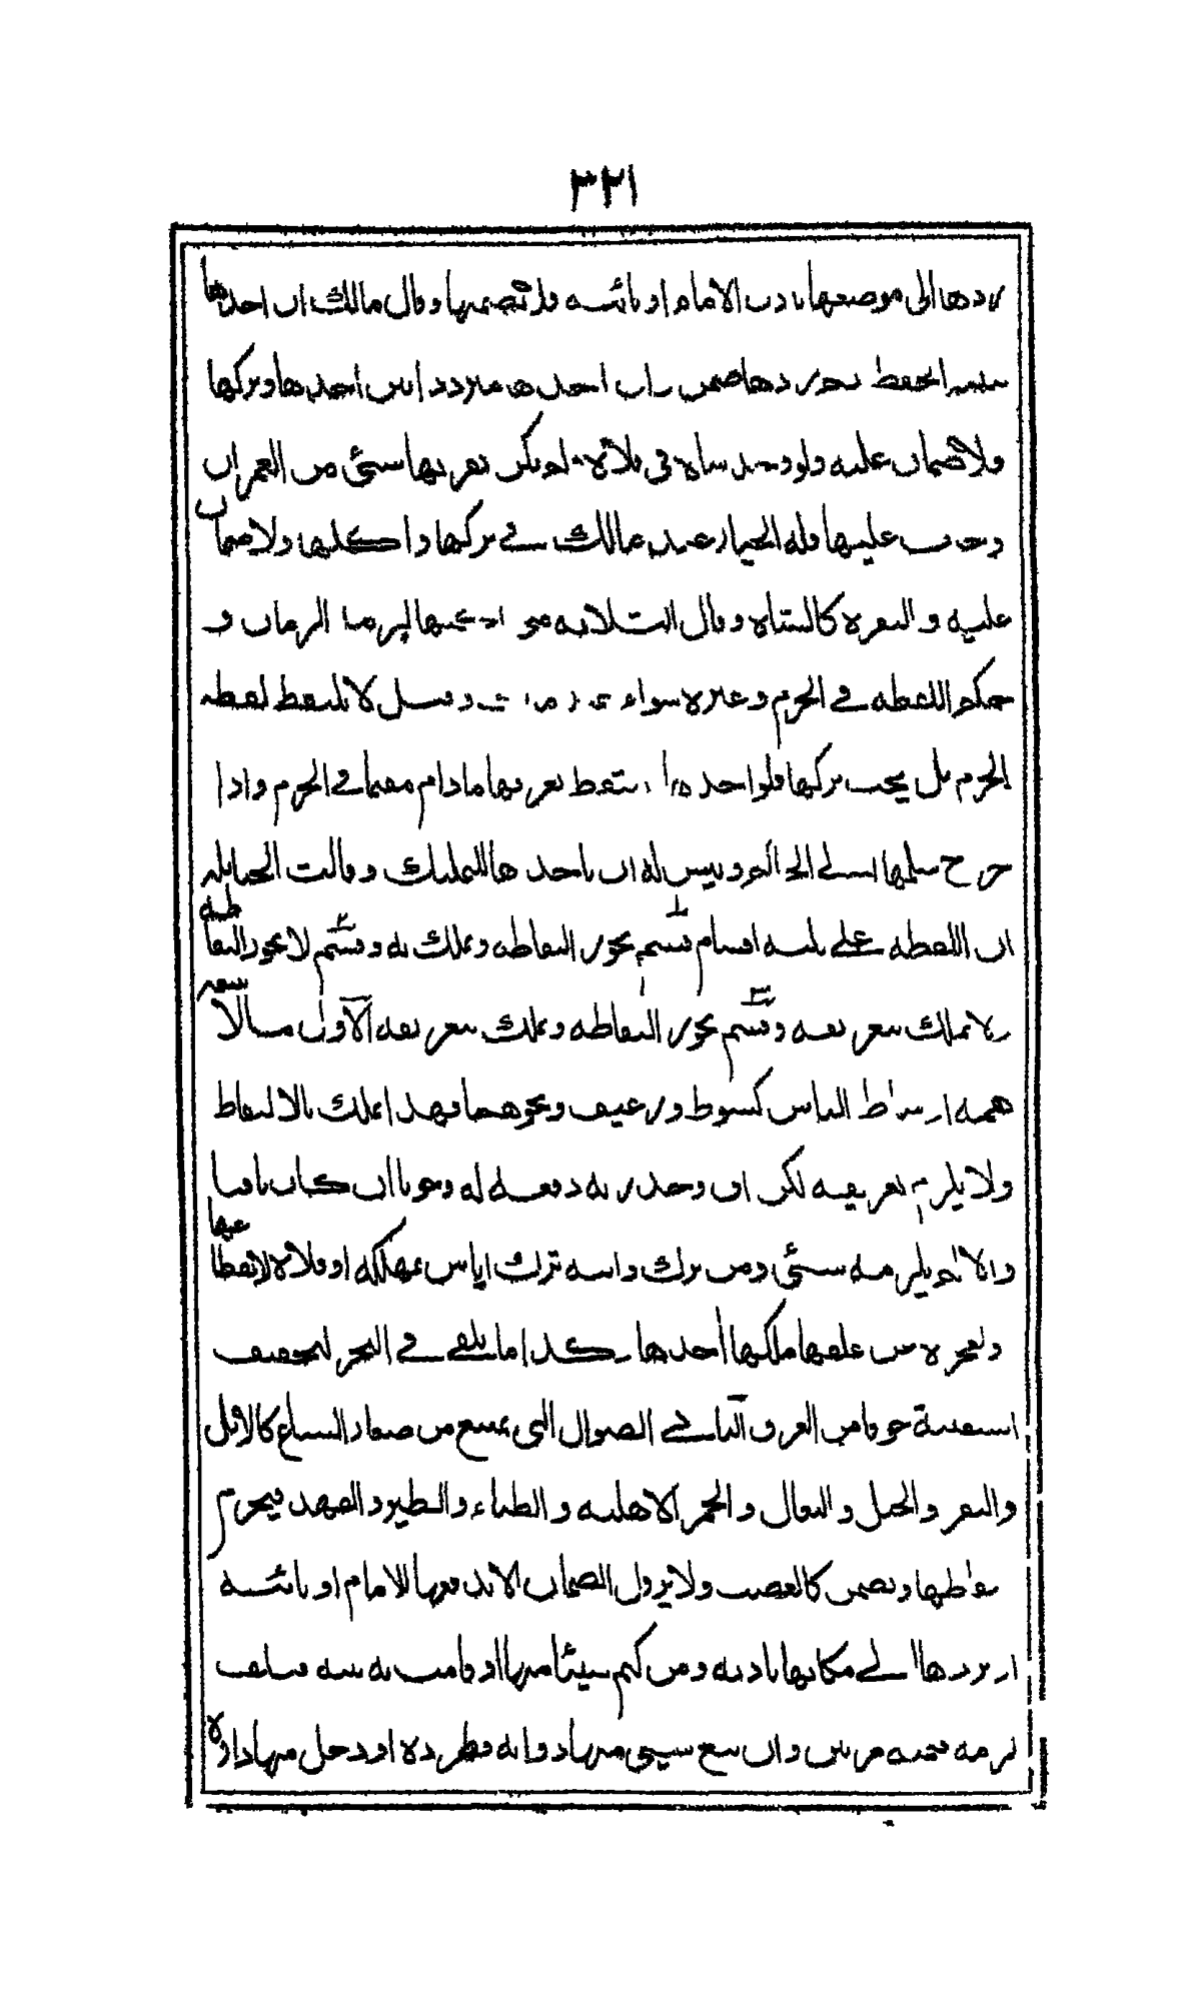 ٣٢١
ردها الى موضعها باذن الامام او نائبه فلا تضمنها وقال مالك ان احدها
بنية الحفظ ثم ردها ضمن وان احدها مترددا بين احدها وتركها
ولا ضمان عليه ولو وجد شاة في فلاة لم يكن بقربها شئ من العمران
وخاف عليها فله الخيار عند مالك في تركها واكلها ولا ضمان
عليه والبقرة كالشاة وقال الثلاثة اكلها لزمها
حكم اللقطة في الحرم وغيره سواء وقيل لا تلتقط لقطة
الحرم بل يجب تركها فلو احد التقط تعريفها مادام مقيما في الحرم واذا
خرج سلمها الى الحاكم وليس له ان ياخدها للتمليك وقالت الحنابلة
ان اللقطة على ثلثة اقسام قسم يجوز التقاطه ويملك به وقسم لا يجوز التقاطه
ولا يملك بتعريفه وقسم يجوز التقاطه ويملك بتعريفه الاول مالا
همة اوساط الناس كسوط ورغيف ونحوهما فهذا يملك بالالتقاط
ولا يلزم تعريفه لكن ان وجد ربه دفعه له وجوبا ان كان باقيا
والا لم يلزمه شئ ومن ترك دابته ترك اياس بمهلكة او فلاة لانقطاعها
ولعجزه عن علفها ملكها احدها وكذا ما يلقى في البحر لتخفيف
السفينة خوفا من الغرق الثاني الضوال التي تمتنع من صغار السباع كالابل
والبقر والخيل والبغال والحمر الاهلية والظباء والطيور والفهد فيحرم
التقاطها وتضمن كالغصب ولا يزول الضمان الا بدفعها للامام او نائبه
او بردها الى مكانها باذنه ومن كتم شيئا منها او قامت به بينة فتلف
لزمه قيمته مرتين وان تبع شيئ منها دوابه فطرده او دخل منها داره